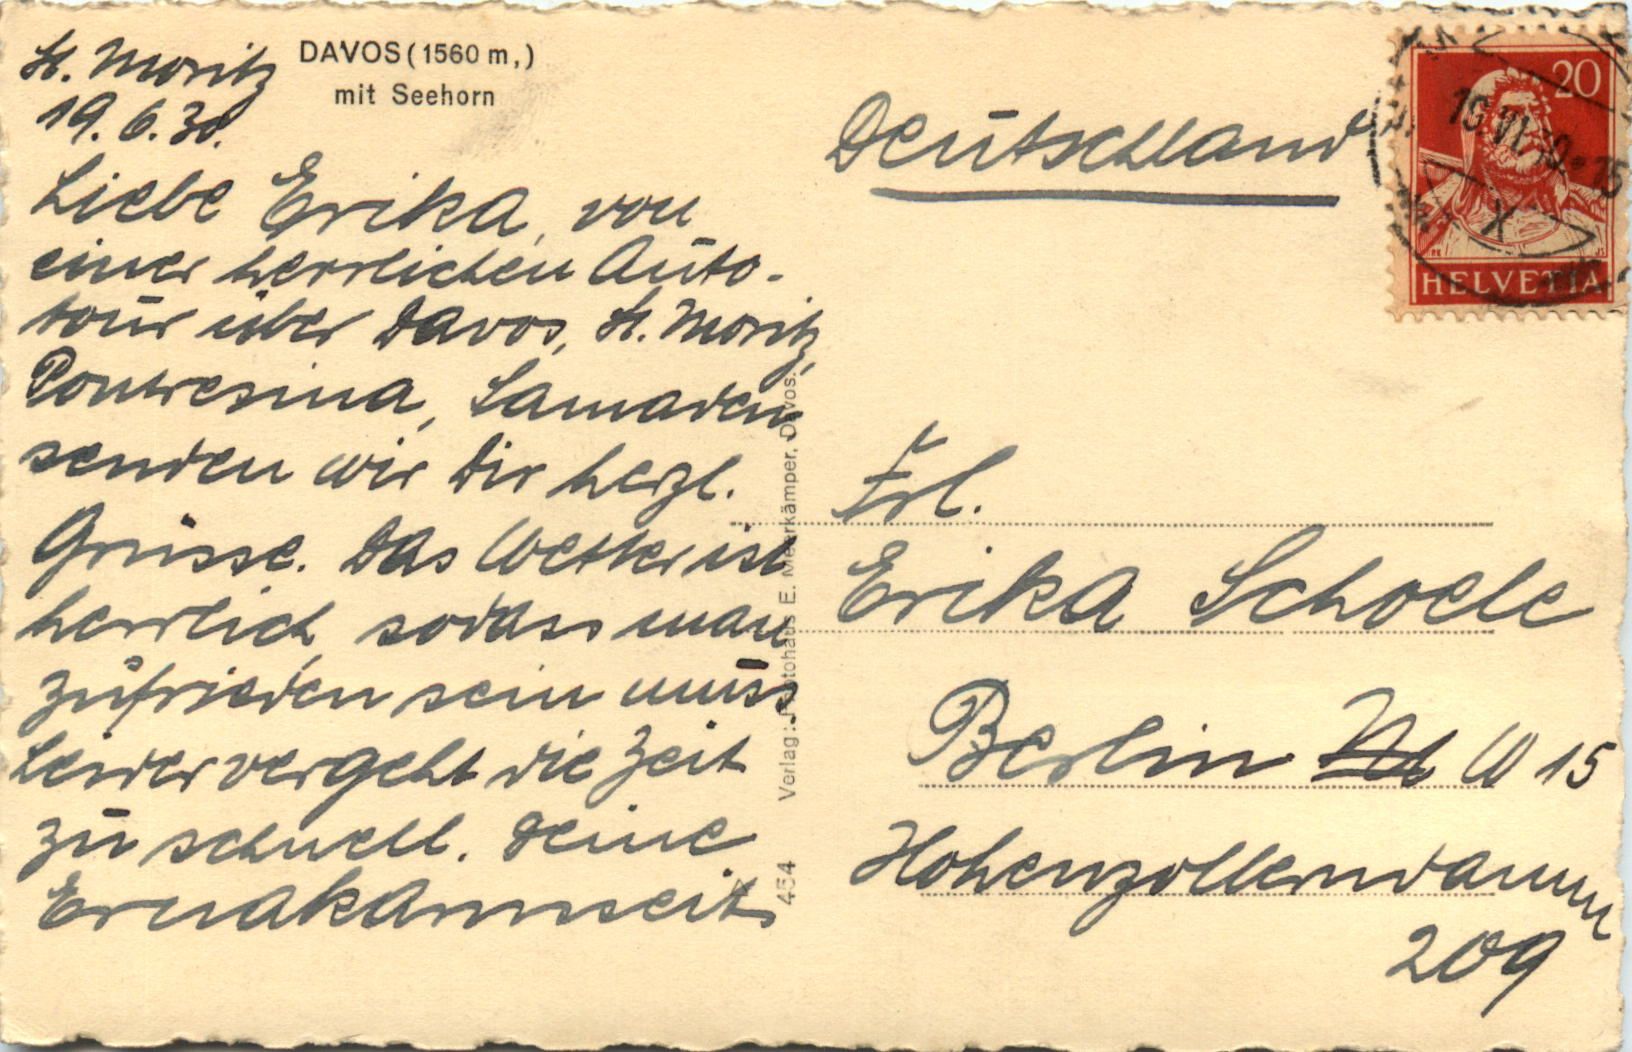 St. Moritz
19.6.30.
DAVOS (1560 m,)
mit Seehorn
Liebe Erika, von
einer herrlichen Auto-
tour über Davos, St. Moritz,
Pontresina, Samaden
senden wir Dir herzl.
Grüsse. Das Wetter ist
herrlich, sodass man
zufrieden sein muss
Leider vergeht die Zeit
zu schnell. Deine
Verlag: Photohaus E. Meerkämper, Davos.
454
Deutschland
20
HELVETIA
Frl.
Erika Schoele
Berlin W 15
Hohenzollerndamm
209